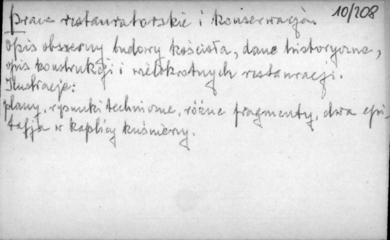 10/208
Prace restauratorskie i konserwacja.
Opis obszerny budowy kościoła, dane historyczne,
opis konstrukcji i wielokrotnych restauracji.
Ilustracje:
plany, rysunki techniczne, różne fragmenty, dwa epi-
tafja w kaplicy kuśnierzy.